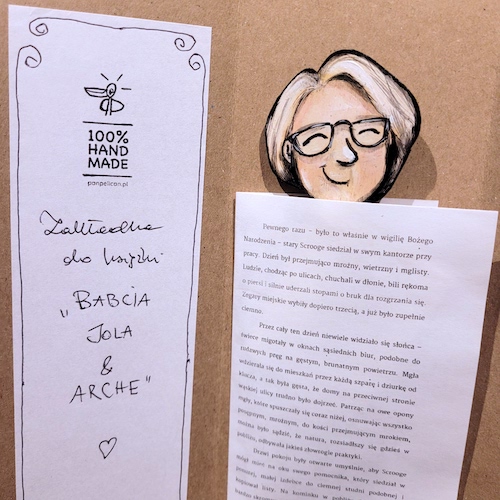 100%
HAND
MADE
panpelican.pl
Zakładka
do książki
„BABCIA
JOLA
&
ARCHE”
Pewnego razu – było to właśnie w wigilię Bożego
Narodzenia – stary Scrooge siedział w swym kantorze przy
pracy. Dzień był przejmująco mroźny, wietrzny i mglisty.
Ludzie, chodząc po ulicach, chuchali w dłonie, bili rękoma
o piersi i silnie uderzali stopami o bruk dla rozgrzania się.
Zegary miejskie wybiły dopiero trzecią, a już było zupełnie
ciemno.
Przez cały ten dzień niewiele widziało się słońca –
świece migotały w oknach sąsiednich biur, podobne do
rudawych pręg na gęstym, brunatnym powietrzu. Mgła
wdzierała się do mieszkań przez każdą szparę i dziurkę od
klucza, a tak była gęsta, że domy na przeciwnej stronie
wąskiej ulicy trudno było dojrzeć. Patrząc na owe opony
mgły, które spuszczały się coraz niżej, osnowając wszystko
posępnym, mroźnym, do kości przejmującym mrokiem,
można było sądzić, że natura, rozsiadłszy się gdzieś w
pobliżu, odbywała jakieś złowrogie praktyki.
Drzwi pokoju były otwarte umyślnie, aby Scrooge
mógł mieć na oku swego pomocnika, który siedział w
ponurej, małej izdebce do ciemnej studni podobnej,
kopiował listy. Na kominku w pokoju